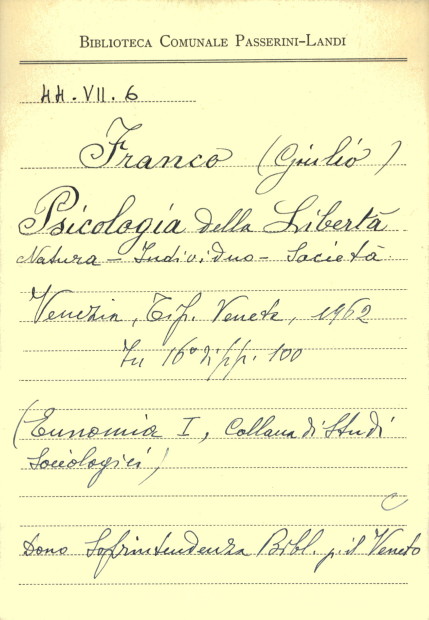 BIBLIOTECA COMUNALE PASSERINI-LANDI
44.VII.6
Franco (Giulio)
Psicologia della Libertà
Natura - Individuo - Società
Venezia, Tip. Venete, 1962
In 16° di pp. 100
(Eunomia I, Collana di Studi
Sociologici)
Dono Soprintendenza Bibl. p. il Veneto